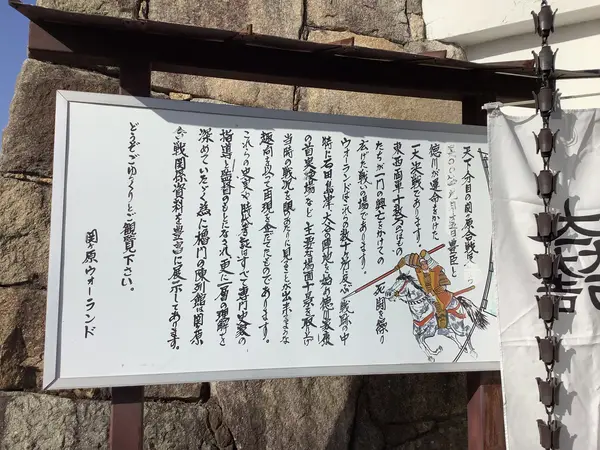 天下分目の関ヶ原合戦は
豊臣と
徳川が運命をかけた
一大決戦であります。
東西両軍十数万のもの
たちが一門の興亡をかけての
死闘を繰り
広げた戦いの場であります。
ウォーランドはこれらの数十ヶ所に及ぶ戦跡の中
特に石田、島津、大谷の陣地を始め徳川家康
の首実検場など、主要な場面十景を取上げ
当時の戦況を眼のあたりに見ることが出来るような
趣向を以って再現を企てたものであります。
これらの史実や時代考証はすべて専門史家の
指導と監督のもとになされ、更に一層の理解を
深めていただく為に楼門の陳列館は関ヶ原
合戦関係資料を豊富に展示してあります。
どうぞごゆっくりとご観覧下さい。
関ヶ原ウォーランド
大一大万大吉